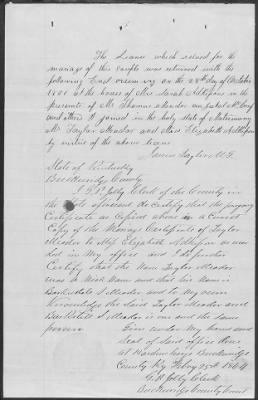 The License which issued for the
marriage of this couple was returned with the
following Endorsement on the 28th Day of October
at the house of Mrs Sarah Atkisson in the
presents of Mr Thomas Meador
and others I joined in the holy state of Matrimony
Mr Taylor Meador and Miss Elizabeth Atkisson
by virtue of the above license
James Taylor M.G.
State of Kentucky
Breckenridge County
I G.P. Jolly Clerk of the County in
the State aforesaid do Certify that the foregoing
Certificate as Copied above is a Correct
Copy of the Marriage Certificate of Taylor
Meador to Elizabeth Atkisson as
in my office and I do further
Certify that the Name Taylor Meador
was a Nick Name and that his name is
Meador and to my own
Knowledge the said Taylor Meador and
Meador is one and the same
person
Given under My hand and
Seal of Said office done
at Hardinsburg Breckenridge
County Ky Feby 25th 1864
G.P. Jolly Clerk
Breckenridge County Court